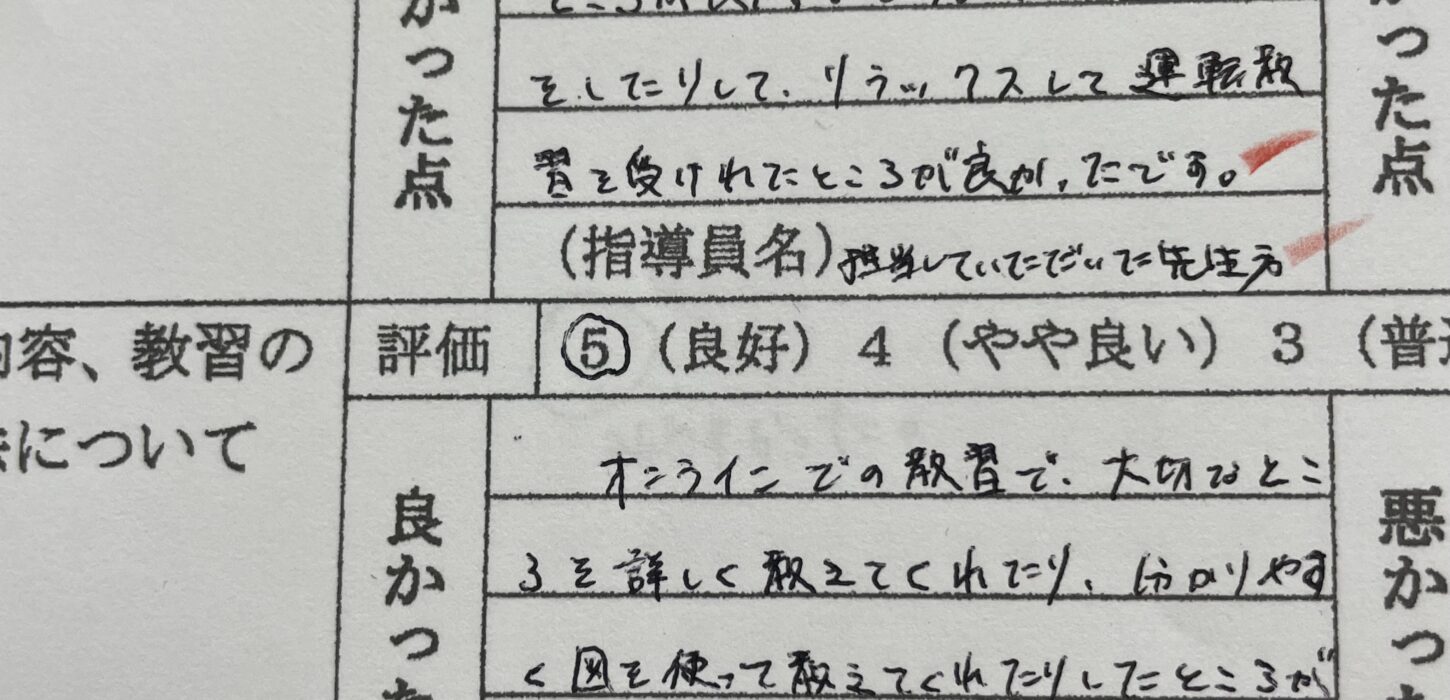 かった点
をしたりして、リラックスして運転教
習を受けれたところが良かったです。
(指導員名)担当していただいた先生方
かった点
内容、教習の
法について
評価 5 (良好) 4 (やや良い) 3 (普通
良かった
オンラインでの教習で、大切なとこ
ろを詳しく教えてくれたり、分かりやす
く図を使って教えてくれたりしたところが
悪かっ